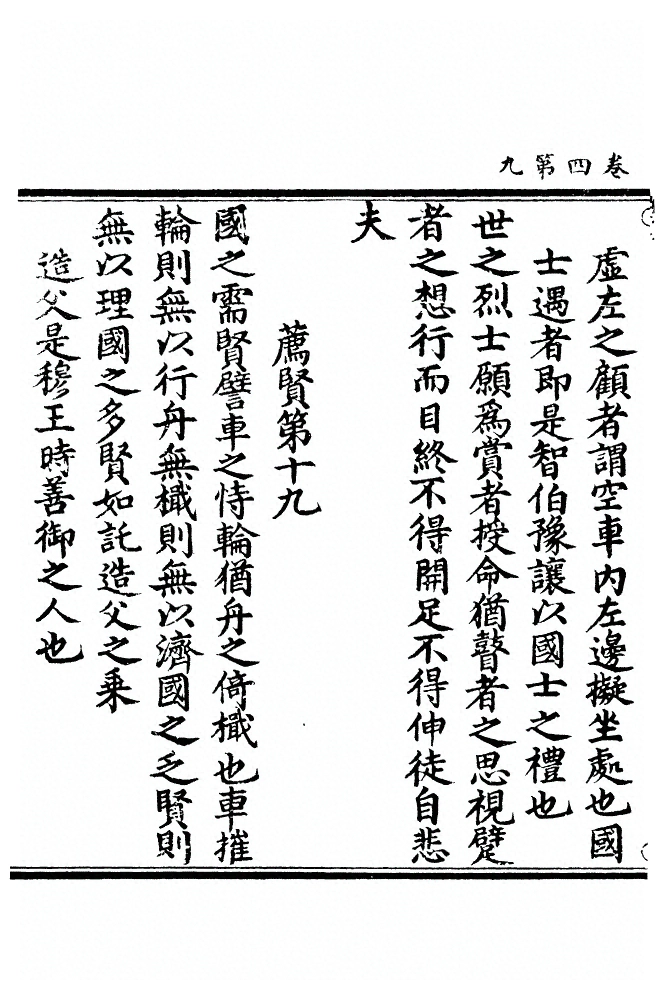 卷四第九
虛左之顧者謂空車內左邊擬坐處也國
士遇者即是智伯豫讓以國士之禮也
世之烈士願為賞者授命猶瞽者之思視躄
者之想行而目終不得開足不得伸徒自悲
夫
薦賢第十九
國之需賢譬車之恃輪猶舟之倚檝也車摧
輪則無以行舟無檝則無以濟國之乏賢則
無以理國之多賢如託造父之乘
造父是穆王時善御之人也